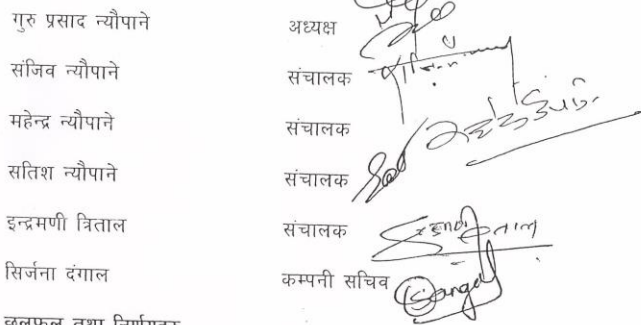 गुरु प्रसाद न्यौपाने अध्यक्ष
संजिव न्यौपाने संचालक
महेन्द्र न्यौपाने संचालक
सतिश न्यौपाने संचालक
इन्द्रमणी त्रिताल संचालक
सिर्जना दंगाल कम्पनी सचिव
छलफल तथा निर्णयहरु